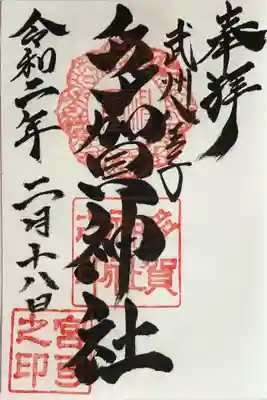 奉拝
武州八王子
多賀神社
令和二年 二月十八日
多賀神社之印
宮司之印